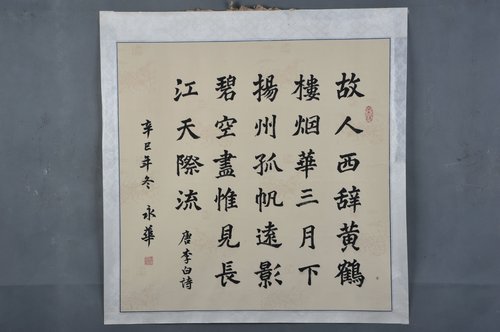 故人西辞黄鶴
樓烟華三月下
揚州孤帆遠影
碧空盡惟見長
江天際流
唐李白詩
辛巳年冬 永華